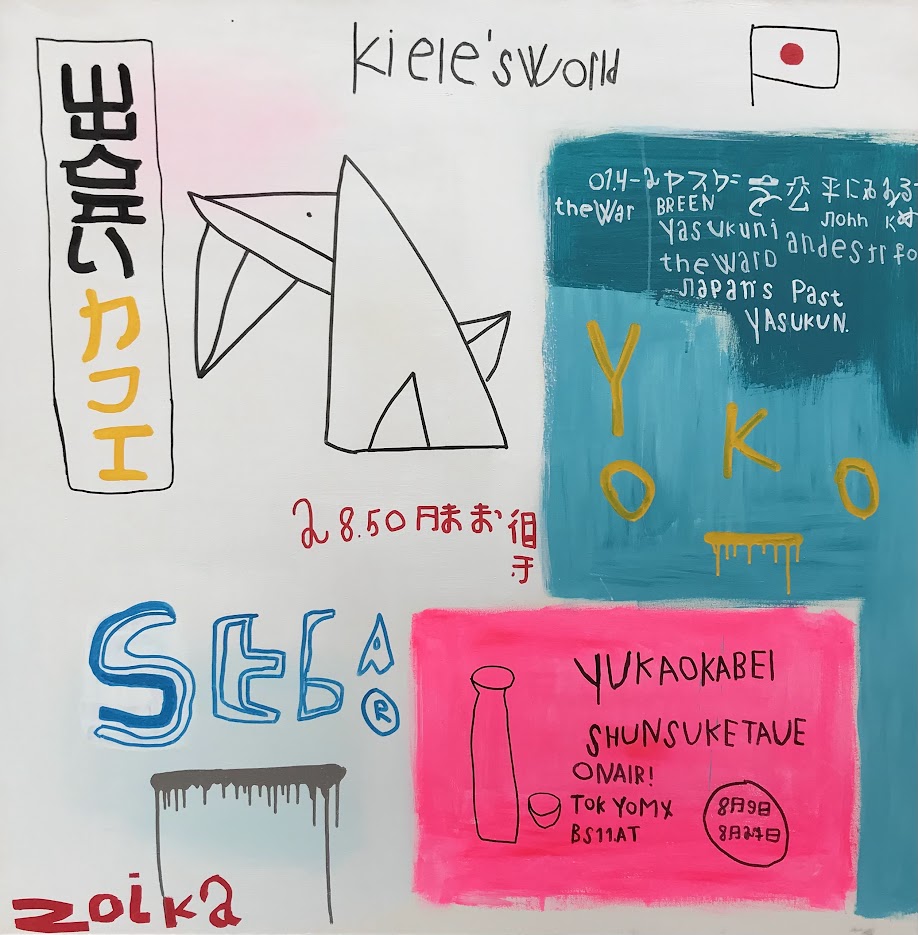 kiele'sWorld
出会い
カフェ
01.4-2ヤスクニ
theWar BREEN
John
Yasukuni
andestrfo
thewarD
Japan's Past
YASUKUN.
YOKO
28.50
YUKAOKABEI
SHUNSUKETAUE
ONAIR!
TOKYOMX
BS11.AT
8月9日
8月27日
zoika